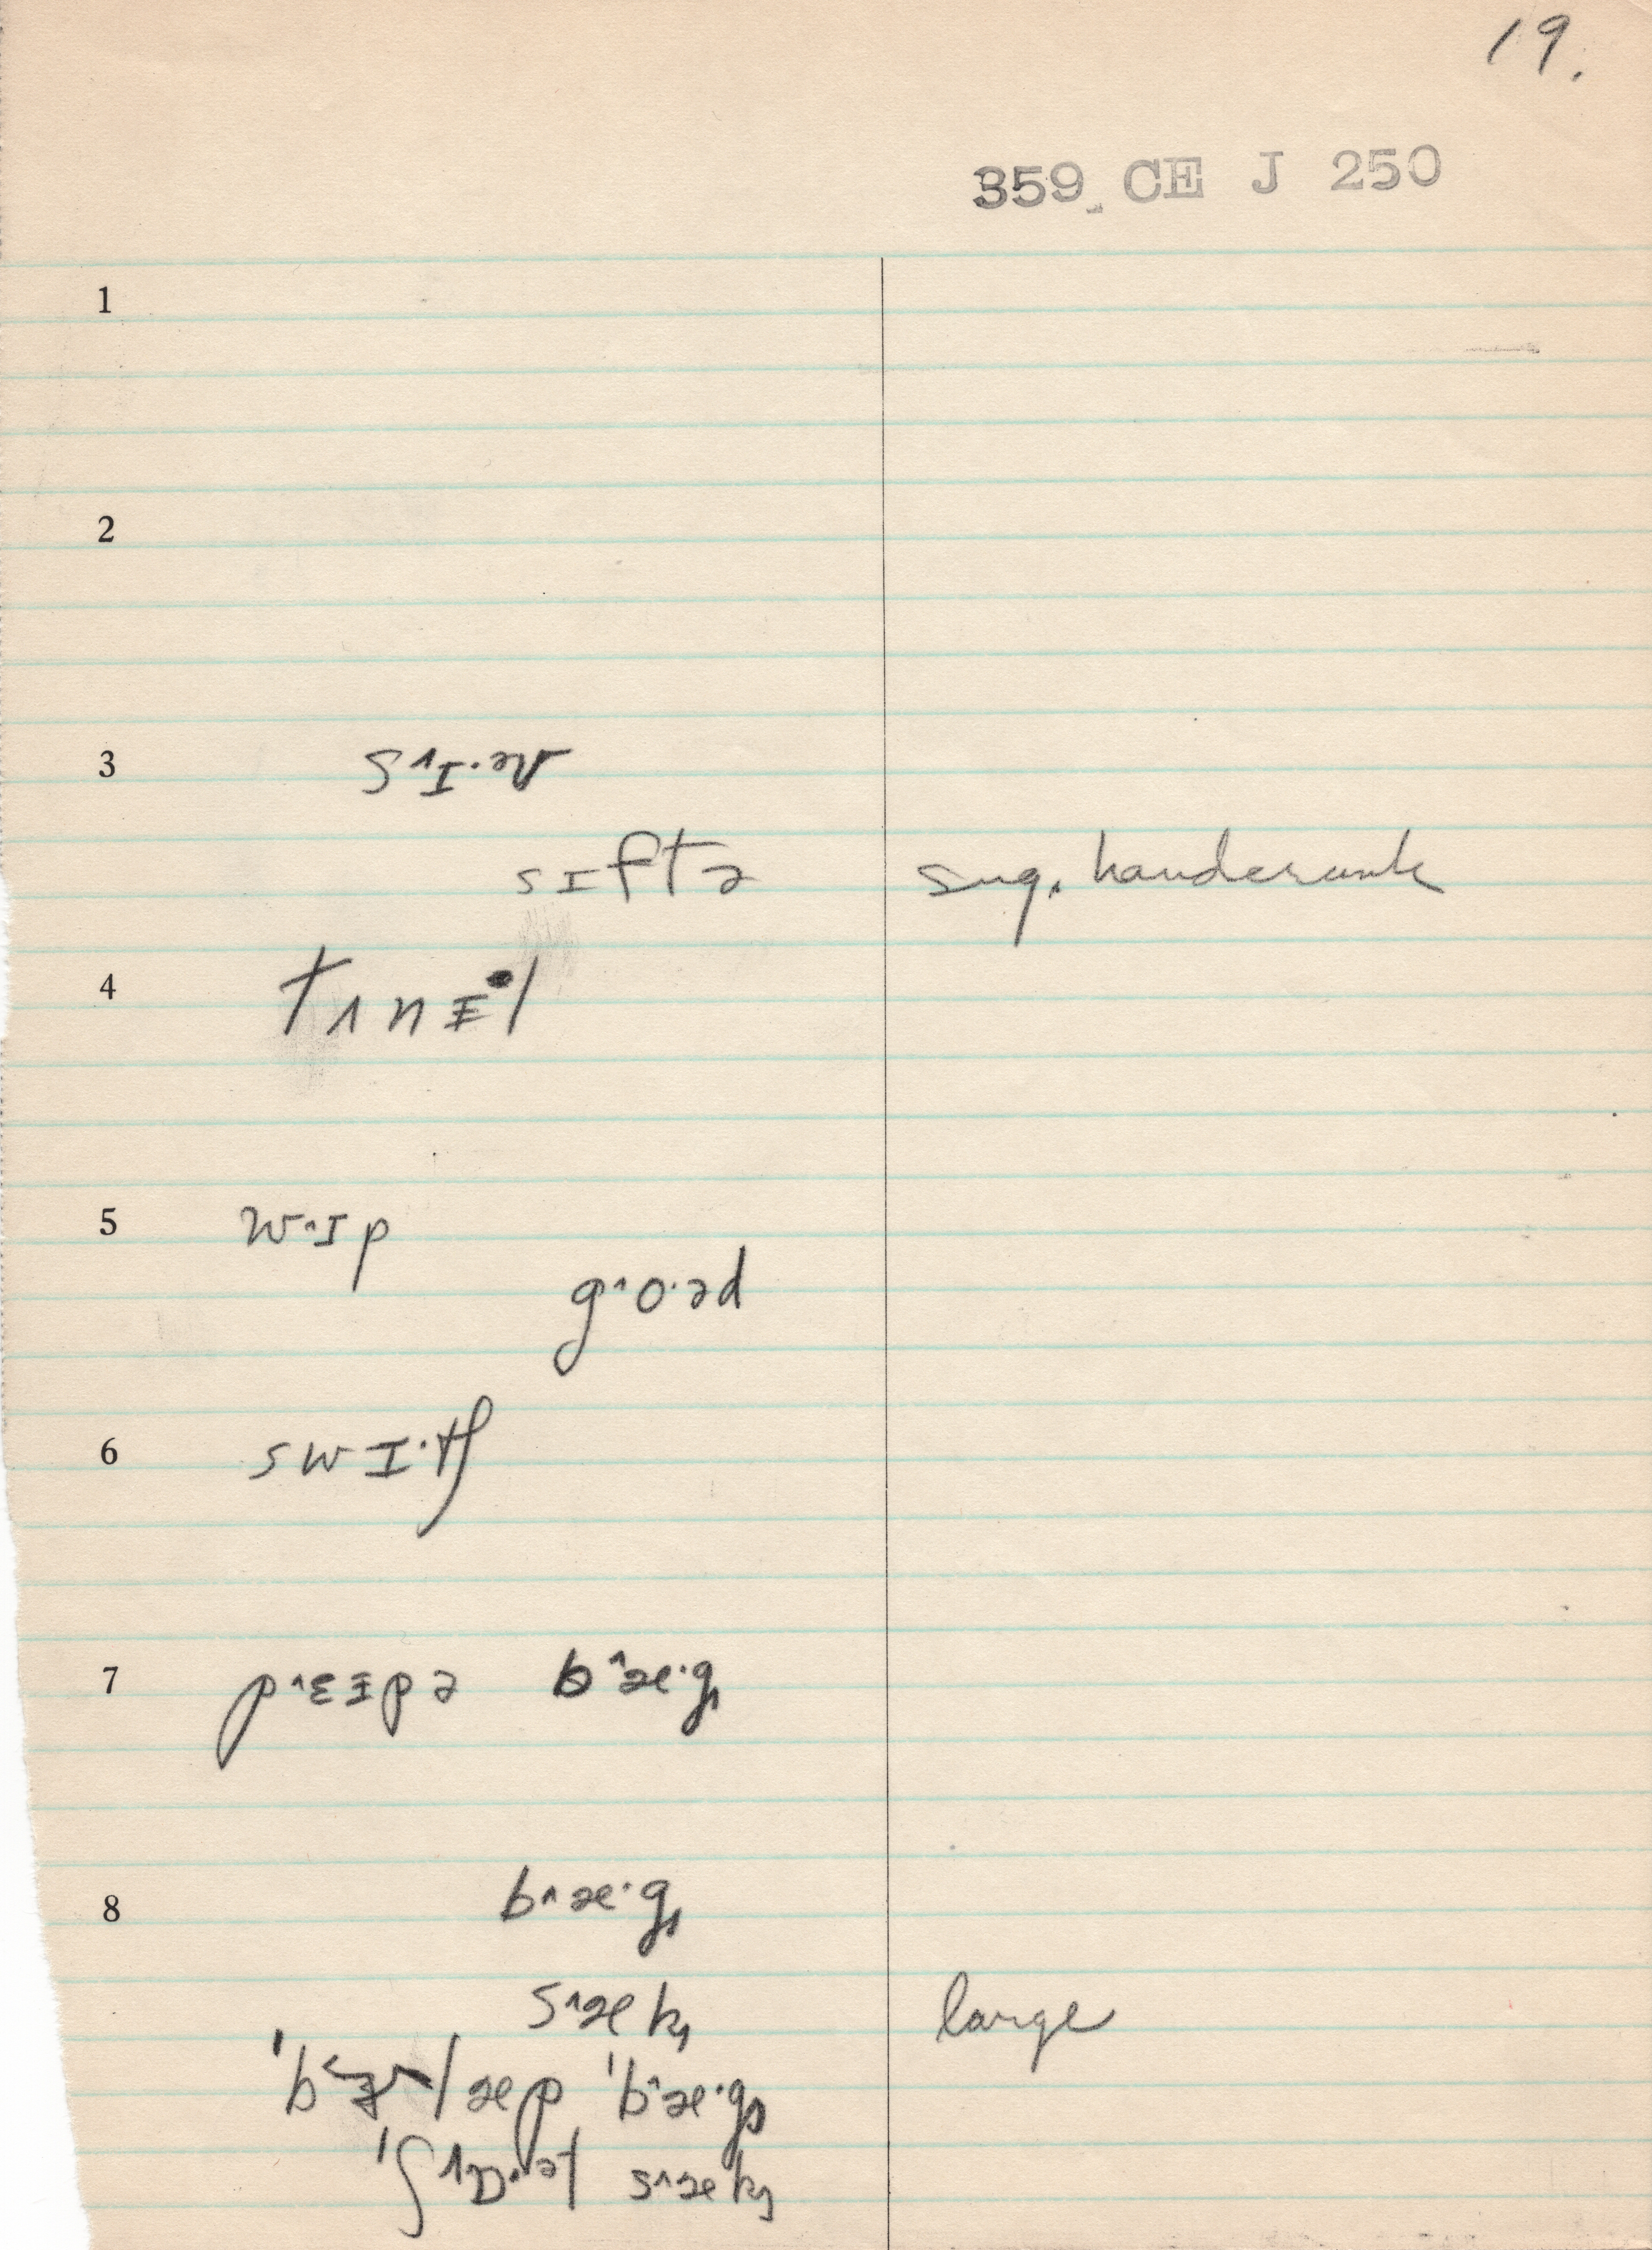 19.
359 CE J 250
1
2
3 s˄ɪ·əv
sɪftə sug. handcrank
4 tʌnɨ·l
5 w˄ɪp
g˄o·əd
6 swɪ·tʃ
7 p˄ɛɪpə b˄æ·g
8 b˄æ·g
s˄æk large
læp 'b˄æ·g
s˄æk